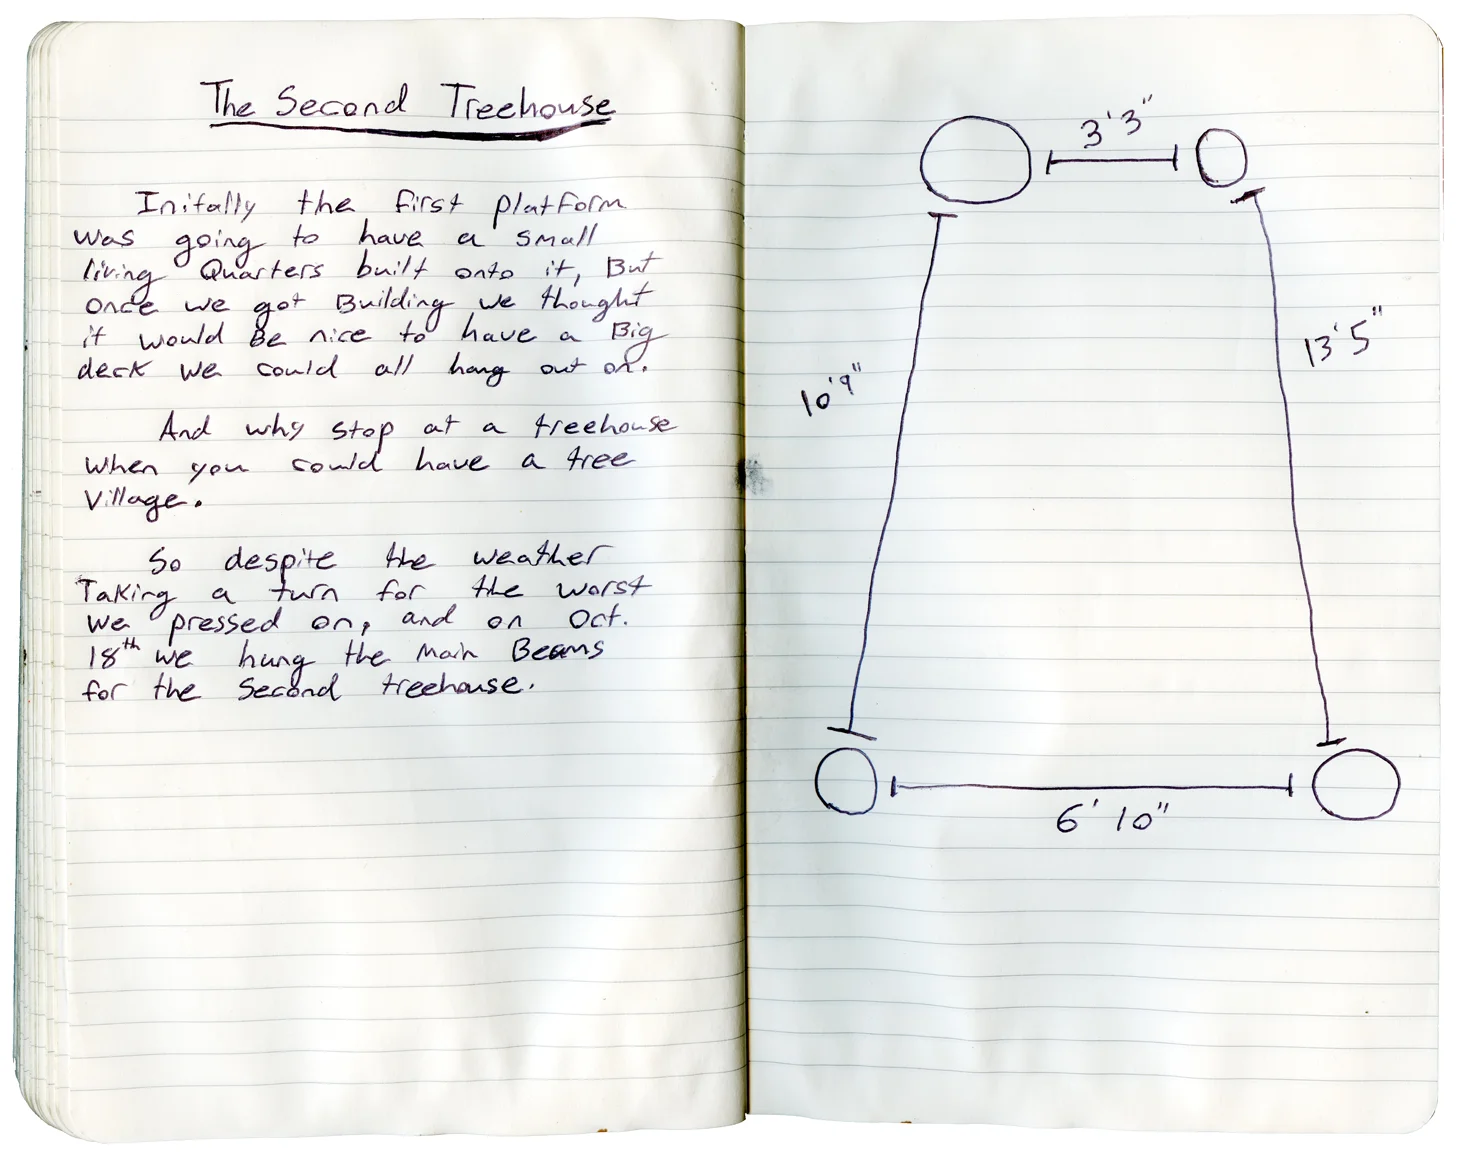 The Second Treehouse
Initally the first platform
was going to have a small
living Quarters built onto it, But
once we got Building we thought
it would Be nice to have a Big
deck we could all hang out on.
And why stop at a treehouse
when you could have a tree
Village.
So despite the weather
Taking a turn for the worst
we pressed on, and on Oct.
18th we hung the main Beams
for the Second treehouse.
3'3"
10'9"
13'5"
6'10"